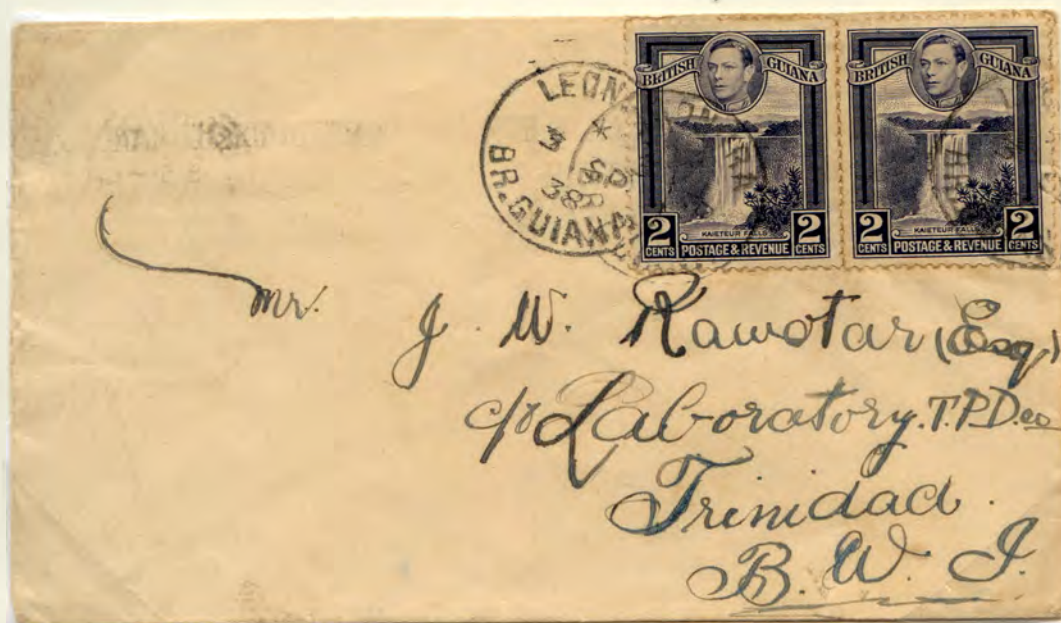 BRITISH GUIANA
KAIETEUR FALLS
2 CENTS POSTAGE & REVENUE 2 CENTS
BRITISH GUIANA
KAIETEUR FALLS
2 CENTS POSTAGE & REVENUE 2 CENTS
3
SP
38
BR. GUIANA
Mr. J. W. Rawotar (Esq.)
c/o Laboratory. T.P.D. co
Trinidad.
B. W. I.